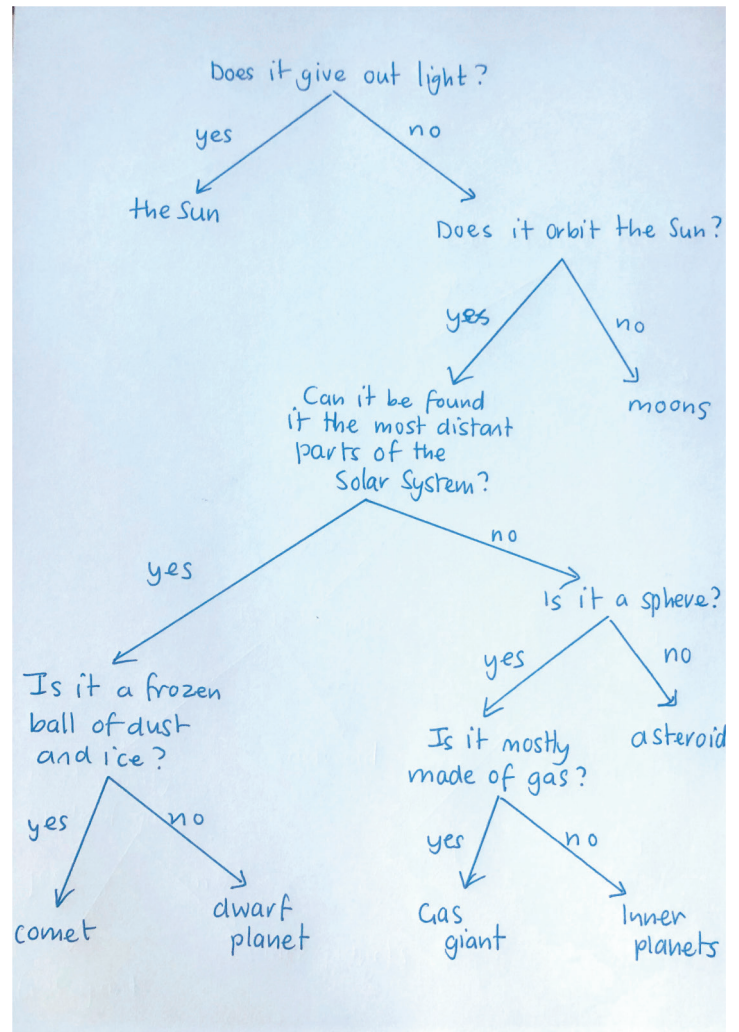 Does it give out light?
yes
no
the Sun
Does it orbit the Sun?
yes
no
Can it be found
it the most distant
parts of the
Solar System?
moons
yes
no
Is it a sphere?
yes
no
Is it a frozen
ball of dust
and ice?
Is it mostly
made of gas?
asteroid
yes
no
yes
no
comet
dwarf
planet
Gas
giant
Inner
planets